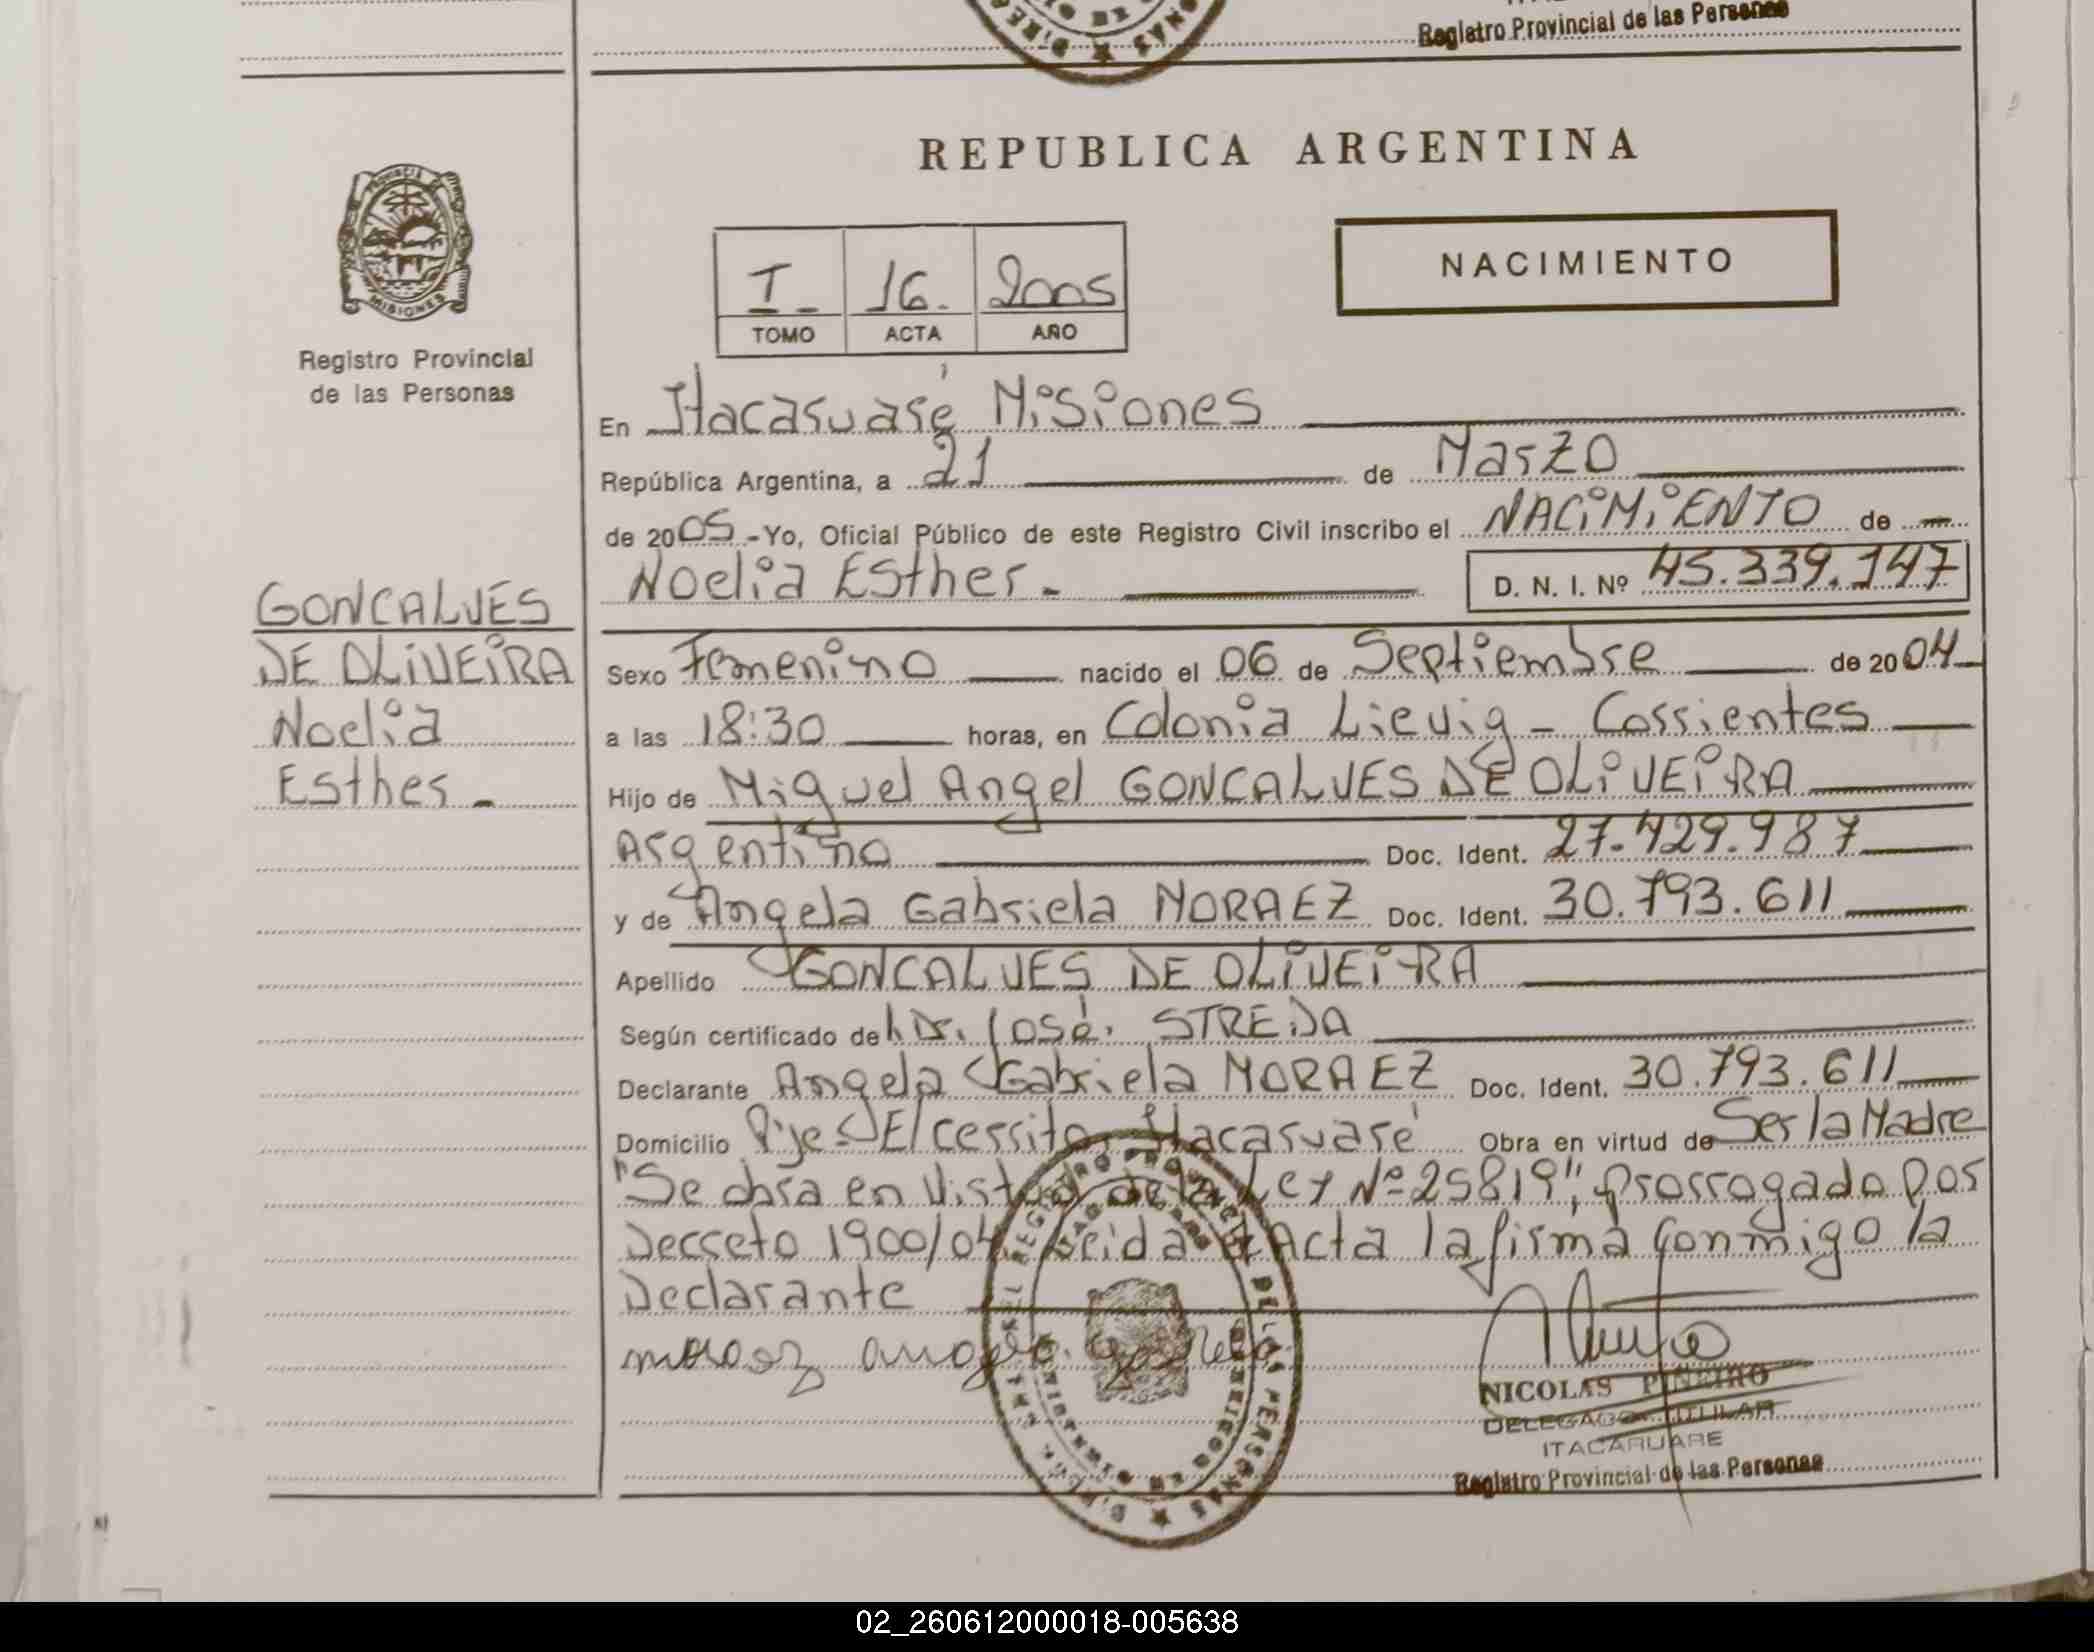 Registro Provincial de las Personas
REPUBLICA ARGENTINA
PROVINCIA DE
MISIONES
Registro Provincial
de las Personas
I_ 16. 2005
TOMO ACTA AÑO
NACIMIENTO
En Itacaruaré Misiones
República Argentina, a 21 de Marzo
de 2005 - Yo, Oficial Público de este Registro Civil inscribo el NACIMIENTO de
Noelia Esther. - D. N. I. Nº 45.339.147
GONCALVES
DE OLIVEIRA
Noelia
Esther -
Sexo Femenino nacido el 06 de Septiembre de 2004
a las 18:30 horas, en Colonia Lievig - Corrientes
Hijo de Miguel Angel GONCALVES DE OLIVEIRA
Argentino Doc. Ident. 27.429.987
y de Angela Gabriela MORAEZ Doc. Ident. 30.793.611
Apellido GONCALVES DE OLIVEIRA
Según certificado de Dr. José. STREDA
Declarante Angela Gabriela MORAEZ Doc. Ident. 30.793.611
Domicilio Pje. El cerrito, Itacaruaré Obra en virtud de Ser la Madre
"Se obra en Vista de la Ley Nº 25819", prorrogado por
Decreto 1900/04. Leida el Acta la firma conmigo la
Declarante
moraez angela gabriela
NICOLAS PINEIRO
DELEGADO TITULAR
ITACARUARE
Registro Provincial de las Personas
02_260612000018-005638